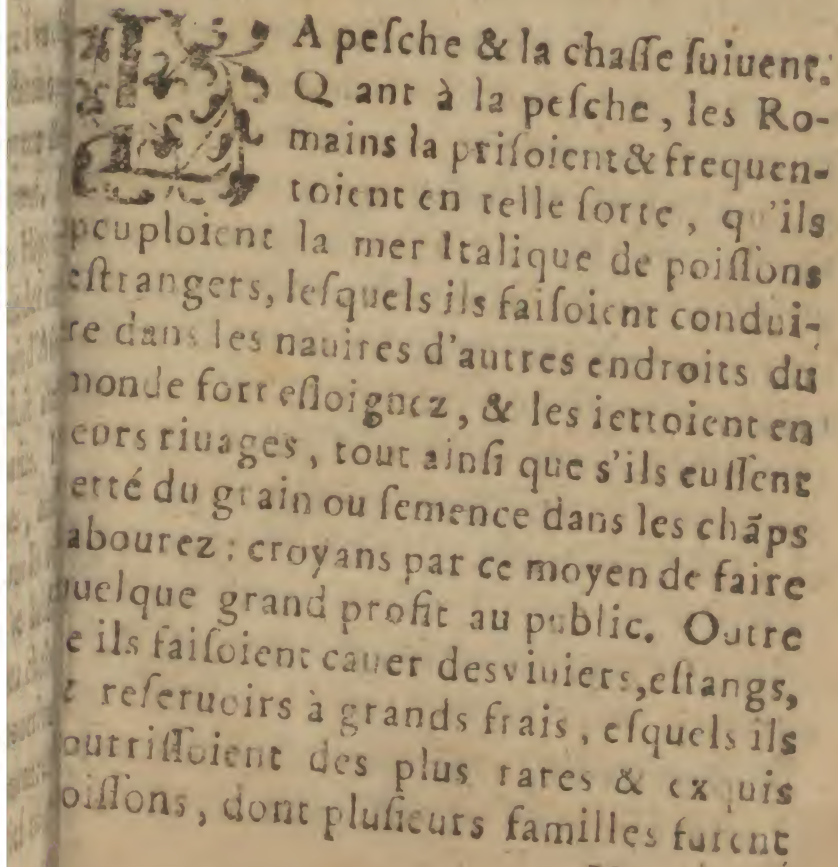 LA peſche & la chaſſe ſuiuent.
Q ant à la peſche, les Ro-
mains la priſoient & frequen-
toient en telle ſorte, q 'ils
peuploient la mer Italique de poiſſons
eſtrangers, leſquels ils faiſoient condui-
re dans les nauires d'autres endroits du
monde fort eſloignez, & les iettoient en
eurs riuages, tout ainſi que s'ils euſſent
etté du grain ou ſemence dans les chãps
abourez : croyans par ce moyen de faire
quelque grand profit au public. Outre
e ils faiſoient cauer des viuiers, eſtangs,
t reſeruoirs à grands frais, eſquels ils
ourriſſoient des plus rares & ex uis
oiſſons, dont pluſieurs familles furent